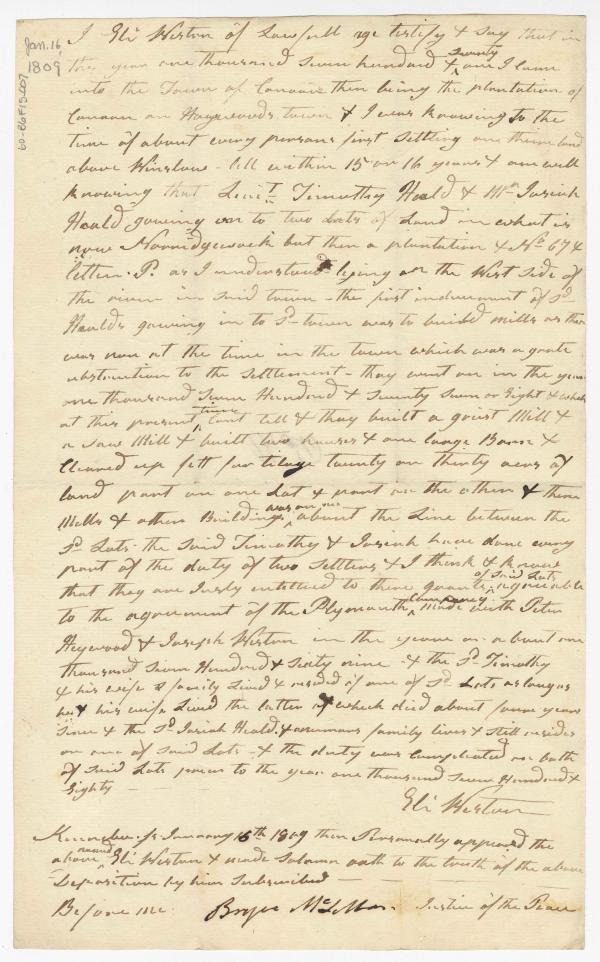 Jan. 16,
1809
60-B6F15-C07
I Eli Weston of Lawfull age testify & Say that in
the year one thousand Seven hundred & Seventy one I Came
into the Town of Canaan then being the plantation of
Canaan or Haywoods town & I was knowing to the
time of about every persons first Settling on there land
above Winslow till within 15 or 16 years & am well
knowing that Liuit Timothy Heald & Mr Josiah
Heald gowing on to two Lots of Land in what is
now Norridgewock but then a plantation & No 67 &
letter P. as I understood lying on the West Side of
the river in Said town - the first inducment of sd
Healds gowing in to sd town was to build mills as there
was non at the time in the town which was a grate
obstruction to the Settlement - they went on in the year
one thousand Seven Hundred & Seventy Seven or Eight & which
at this present time I cant tell & they built a grist Mill &
a Saw Mill & built two houses & one large Barn &
Cleared up fitt for tilage twenty or thirty acres of
land part on one Lot & part on the other & there
Mills & other Buildings was on or about the Line between the
sd Lots - the Said Timothy & Josiah have done every
part of the duty of two Settlers & I think & know
that they are Justly entitled to there grants of Said Lots agreeable
to the agreement of the Plymouth Company made with Peter
Heywood & Joseph Weston in the yeare or about one
thousand Seven Hundred & Sixty nine - & the sd Timothy
& his wife & family Lived & resided on one of sd Lots as long as
he & his wife Lived the latter of which died about years
Since & the sd Josiah Heald & numerous family lives & Still resides
on one of Said Lots - & the duty was Complicated on both
of Said Lots prior to the year one thousand Seven Hundred &
Eighty
Eli Weston
Kennebec Ss January 16th 1809 then Personally appeared the
above named Eli Weston & made Solomn oath to the truth of the above
Deposition by him Subscribed
Before me Justice of the Peace